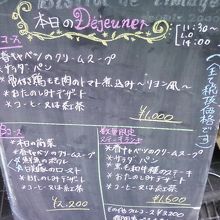 本日のDéjeuner
11:30~
L.O
14:00
Aコース
春キャベツのクリームスープ
サラダ パン
骨付き鶏もも肉のトマト煮込み ~リヨン風~
おたのしみデザート
コーヒー又は紅茶
¥1,000
Bコース
本日の前菜
春キャベツのクリームスープ
鮮魚のポワレ
おたのしみデザート
コーヒー又は紅茶
¥2,200
数量限定
ステーキランチ
春キャベツのクリームスープ
サラダ パン
黒毛和種のステーキ
おたのしみデザート
コーヒー又は紅茶
¥1,600
(全て税抜価格です)